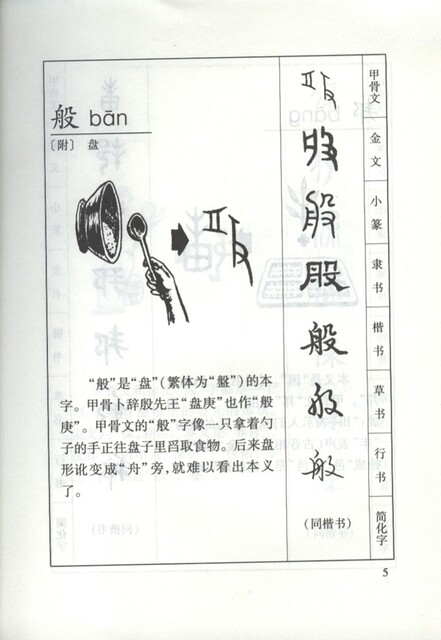 般 bān
〔附〕 盘
“般”是“盘”(繁体为“盤”)的本
字。甲骨卜辞殷先王“盘庚”也作“般
庚”。甲骨文的“般”字像一只拿着勺
子的手正往盘子里舀取食物。后来盘
形讹变成“舟”旁,就难以看出本义
了。
般
般
般
般
般
般
般
(同楷书)
甲骨文
金文
小篆
隶书
楷书
草书
行书
简化字
5